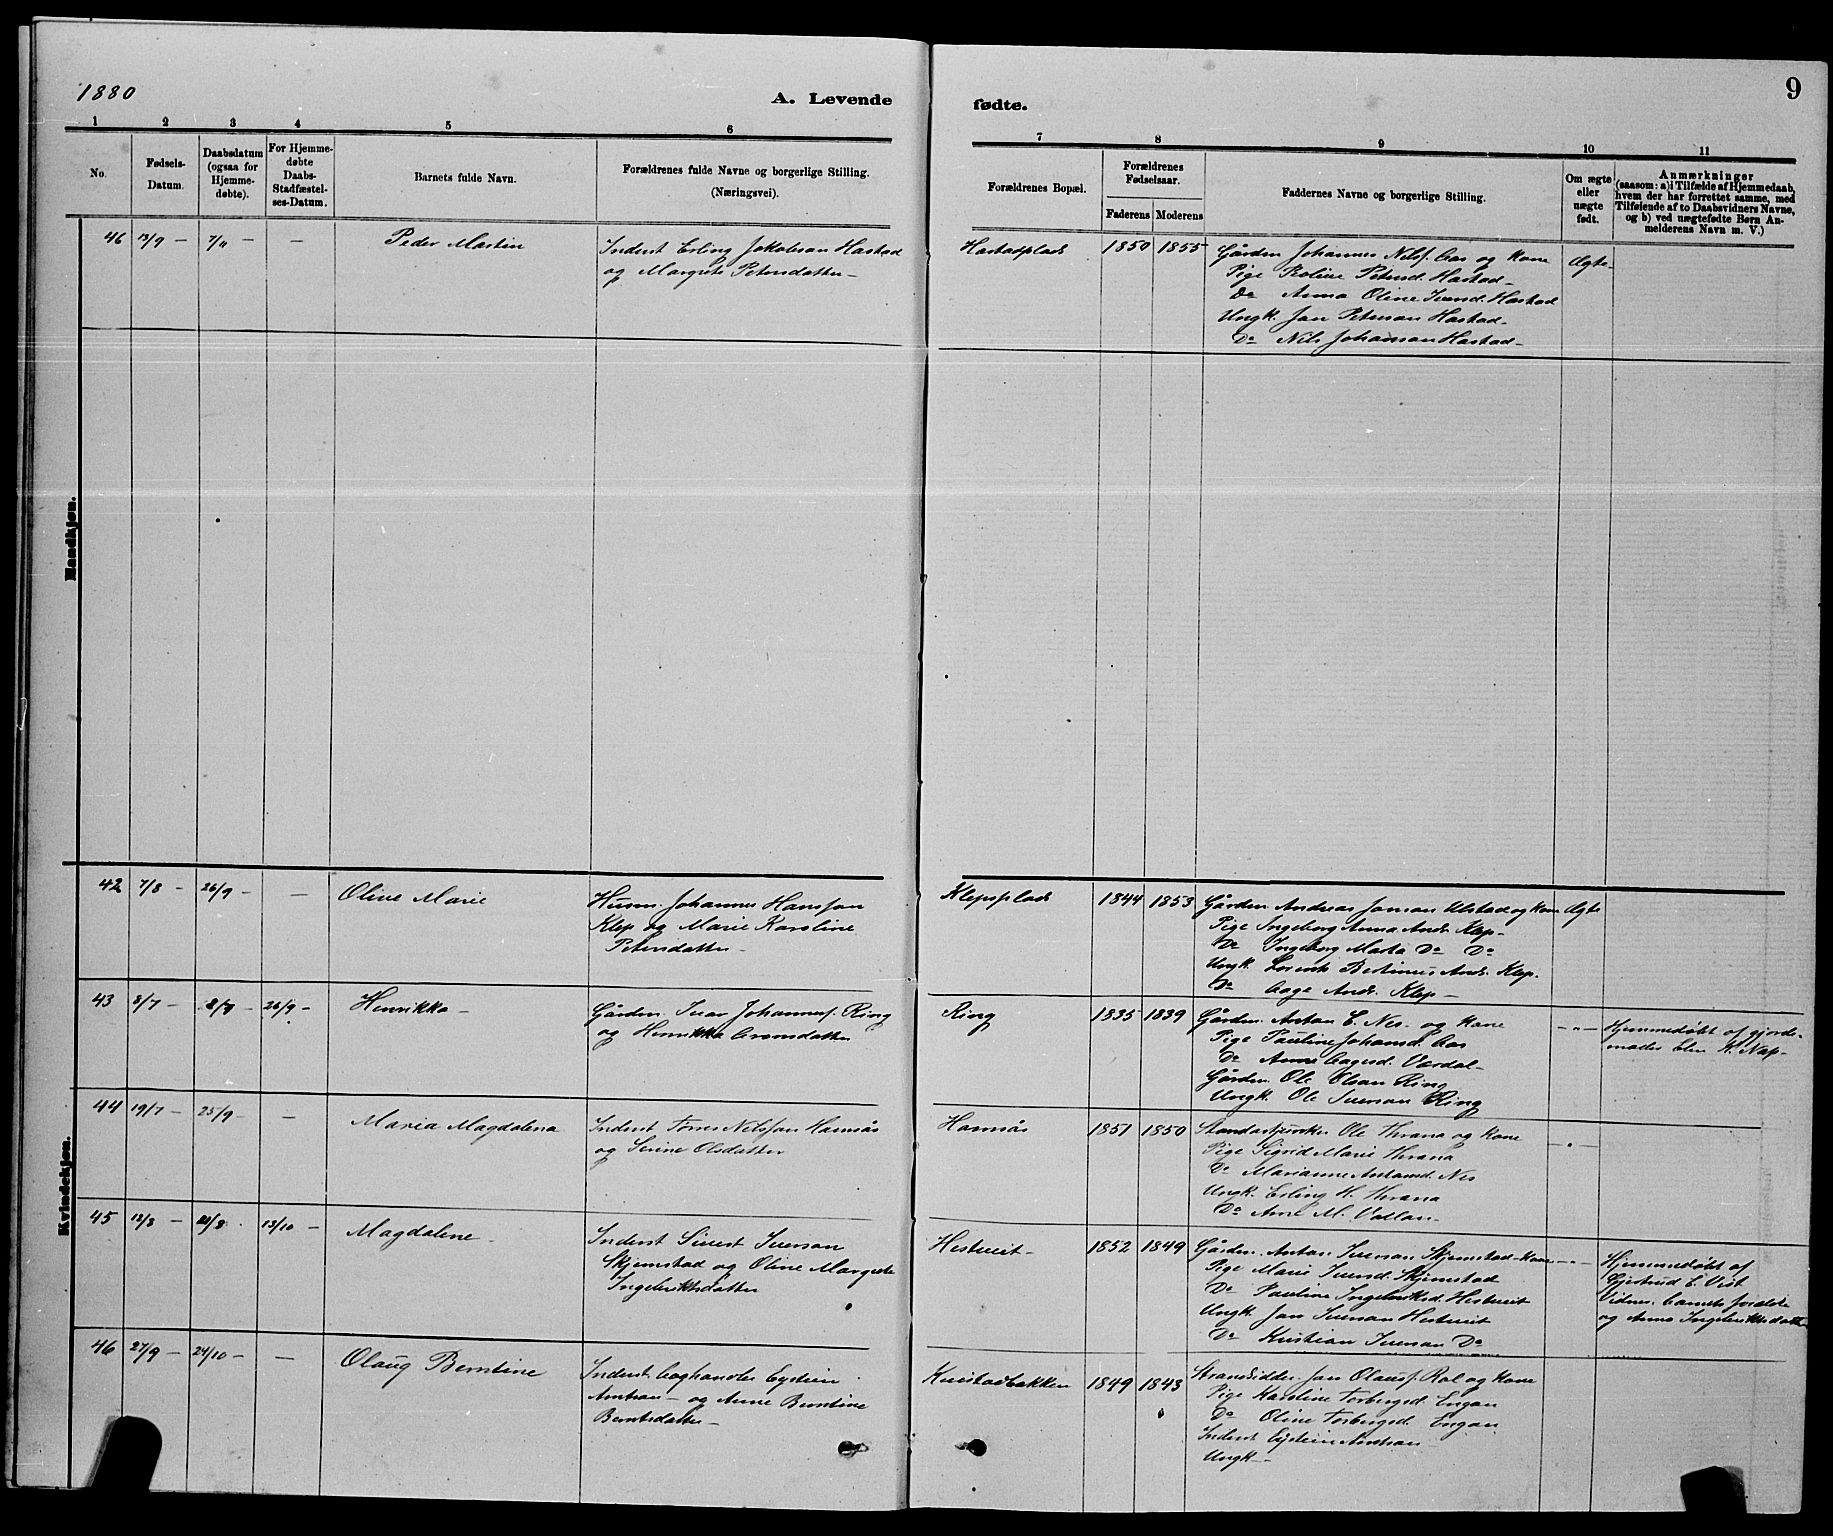 1880
A. Levende
fødte.
9
1 2 3 4 5 6 7 8 9 10 11
No.
Fødsels-
Datum.
Daabsdatum
(ogsaa for
Hjemme-
døbte).
For Hjemme-
døbte
Daabs-
Stadfæstel-
ses-Datum.
Barnets fulde Navn.
Forældrenes fulde Navne og borgerlige Stilling.
(Næringsvei).
Forældrenes Bopæl.
Forældrenes
Fødselsaar.
Faderens Moderens
Faddernes Navne og borgerlige Stilling.
Om ægte
eller
uægte
født.
Anmærkninger
(saasom: a) i Tilfælde af Hjemmedaab,
hvem der har forrettet samme, med
Tilføiende af to Daabsvidners Navne,
og b) ved uægtefødte Børn An-
melderens Navn m. V.)
Mandkjøn.
46 13/9 - 7/11 - -
Peder Martin
Inderst Erling Jakobsan Hastad
og Margrete Petersdatter -
Hastadplads
1850 1855
Gårdm. Johannes Nilsf. Aas og Kone
Pige Roline Petersd. Hastad -
Do Anna Oline Iversd. Hastad
Ungk. Jon Petersan Hastad -
Do Nils Johansan Hastad -
Ægte
Kvindekjøn.
42 7/8 - 26/9 - -
Oline Marie
Husm. Johannes Hansfon
Klep og Marie Karoline
Petersdatter -
Klepsplads
1844 1853
Gårdm. Andreas Jonsan Ulstad og Kone
Pige Ingeborg Anna Andr. Klep -
Do Ingeborg Marta Do Do
Ungk. Lorents Bertinus Andr. Klep.
Do Aage Andr. Klep -
Ægte
43 8/7 - 8/7 - 26/9 -
Henrikka -
Gårdm. Ivar Johannesf. Ring
og Henrikka Aronsdatter
Ring
1835 1839
Gårdm. Anton E. Nes. og Kone
Pige Pauline Johansd. Aas
Do Anne Aagesd. Vardal -
Gårdm. Ole Olsan Ring
Ungk. Ole Iversan Ring
- " -
Hjemmedøbt af gjorde-
moder Elen K. Nap -
44 19/7 - 25/9 - -
Maria Magdalena
Inderst Torres Nilsfon Hamnås
og Serine Olsdatter
Hamnås
1851 1850
Ole Thrana og Kone
Pige Sigrid Marie Thrana
Do Marianne Antonsd. Nes
Ungk. Erling H. Thrana
Do Arnt M. Vollan -
- " -
45 12/8 - 20/8 - 13/10 -
Magdalene -
Inderst Sivert Iversan
Skjemstad og Oline Margrete
Ingebriktsdatter
Hestveit -
1852 1849
Gårdm. Anton Iversan Skjemstad - Kone
Pige Marie Iversd. Skjemstad
Do Pauline Ingebriktsd. Hestveit
Ungk. Jon Iversan Hestveit
Do Kristian Iversan Do
- " -
Hjemmedøbt af
Gjertrud E. Vist
Vidner: barnets forældre
og Anna Ingebriktsdatter
46 27/9 - 24/10 - -
Olaug Berntine
Inderst boghandler Eystein
Arntsan - og Anne Berntine
Berntsdatter -
Kvistadbakken
1849 1843
Strandsidder Jon Olausf. Rol og Kone
Pige Karoline Torbergsd. Engan
Do Oline Torbergsd. Engan
Inderst Eystein Arntsan
Ungk. -